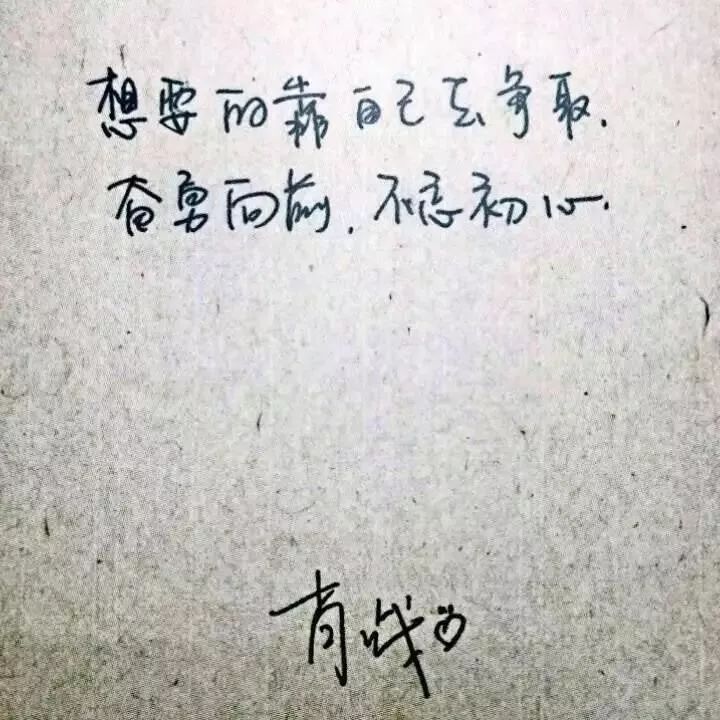 想要的靠自己去争取.
奋勇向前,不忘初心.
肯哦